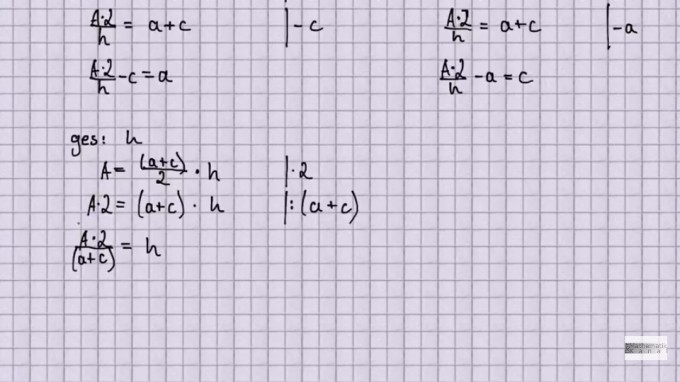 A·2/h = a+c | -c
A·2/h - c = a
A·2/h = a+c | -a
A·2/h - a = c
ges: h
A = (a+c)/2 · h | ·2
A·2 = (a+c) · h | :(a+c)
A·2/(a+c) = h